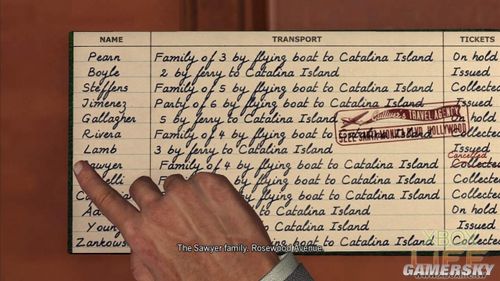 NAME TRANSPORT TICKETS
Pearn Family of 3 by flying boat to Catalina Island On hold
Boyle 2 by ferry to Catalina Island Issued
Steffens Family of 5 by flying boat to Catalina Island Collected
Jimenez Party of 6 by flying boat to Catalina Island Collected
Gallagher 5 by ferry to Catalina Island On hold
Rivera Family of 4 by flying boat to Catalina Island Collected
Lamb 3 by ferry to Catalina Island Issued
Cancelled
Sawyer Family of 4 by flying boat to Catalina Island Collected
by flying boat to Catalina Island Collected
to Catalina Island Collected
to Catalina Island On hold
Young to Catalina Island Issued
Zankows boat to Catalina Island Collected
Gulliver's TRAVEL AGENCY
SANTA MONICA BLVD. HOLLYWOOD
The Sawyer family. Rosewood Avenue.
XBOX
LIFE
GAMERSKY